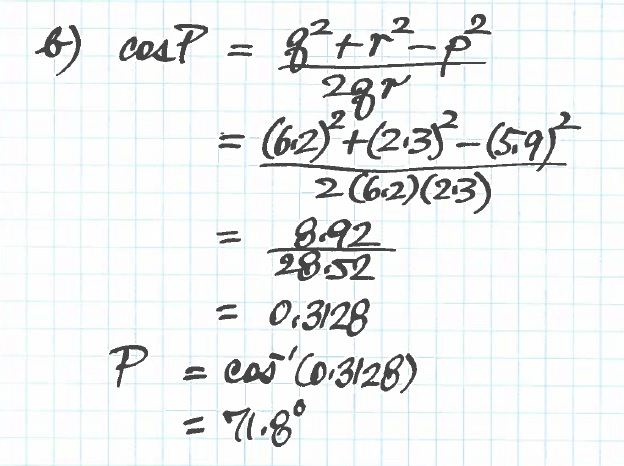 b) cosP = (q² + r² - p²) / 2qr
= ((6.2)² + (2.3)² - (5.9)²) / 2(6.2)(2.3)
= 8.92 / 28.52
= 0.3128
P = cos⁻¹(0.3128)
= 71.8°